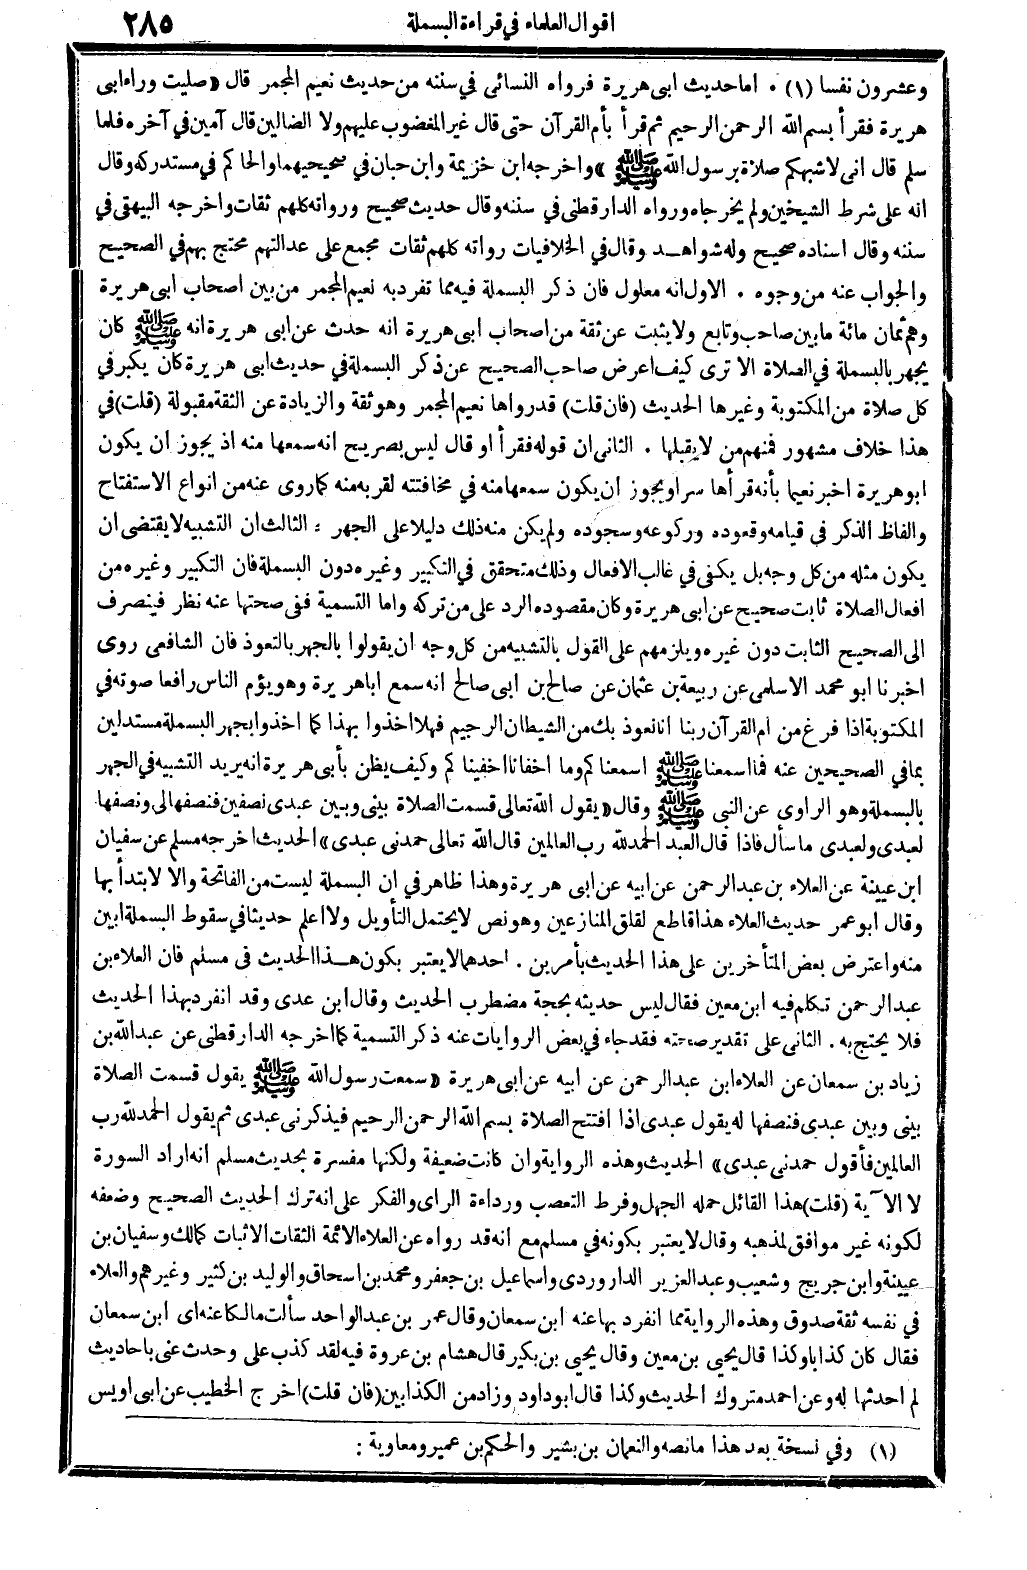 اقوال العلماء في قراءة البسملة
٢٨٥
وعشرون نفسا (١) . اما حديث ابى هريرة فرواه النسائى في سننه من حديث نعيم المجمر قال «صليت وراء ابى
هريرة فقرأ بسم الله الرحمن الرحيم ثم قرأ بأم القرآن حتى قال غير المغضوب عليهم ولا الضالين قال آمين في آخره فلما
سلم قال انى لاشبهكم صلاة برسول الله ﷺ» واخرجه ابن خزيمة وابن حبان في صحيحيهما والحاكم في مستدركه وقال
انه على شرط الشيخين ولم يخرجاه ورواه الدارقطنى في سننه وقال حديث صحيح ورواته كلهم ثقات واخرجه البيهقى في
سننه وقال اسناده صحيح وله شواهد وقال في الخلافيات رواته كلهم ثقات مجمع على عدالتهم محتج بهم في الصحيح
والجواب عنه من وجوه . الاول انه معلول فان ذكر البسملة فيه مما تفرد به نعيم المجمر من بين اصحاب ابى هريرة
وهم ثمان مائة ما بين صاحب وتابع ولا يثبت عن ثقة من اصحاب ابى هريرة انه حدث عن ابى هريرة انه ﷺ كان
يجهر بالبسملة في الصلاة الا ترى كيف اعرض صاحب الصحيح عن ذكر البسملة في حديث ابى هريرة كان يكبر في
كل صلاة من المكتوبة وغيرها الحديث (فان قلت) قد رواها نعيم المجمر وهو ثقة والزيادة عن الثقة مقبولة (قلت) في
هذا خلاف مشهور فمنهم من لا يقبلها . الثانى ان قوله فقرأ او قال ليس بصريح انه سمعها منه اذ يجوز ان يكون
ابو هريرة اخبر نعيما بأنه قرأها سرا ويجوز ان يكون سمعها منه في مخافتته لقربه منه كما روى عنه من انواع الاستفتاح
والفاظ الذكر في قيامه وقعوده وركوعه وسجوده ولم يكن منه ذلك دليلا على الجهر : الثالث ان التشبيه لا يقتضى ان
يكون مثله من كل وجه بل يكفى في غالب الافعال وذلك متحقق في التكبير وغيره دون البسملة فان التكبير وغيره من
افعال الصلاة ثابت صحيح عن ابى هريرة وكان مقصوده الرد على من تركه واما التسمية ففى صحتها عنه نظر فينصرف
الى الصحيح الثابت دون غيره ويلزمهم على القول بالتشبيه من كل وجه ان يقولوا بالجهر بالتعوذ فان الشافعى روى
اخبرنا ابو محمد الاسلمى عن ربيعة بن عثمان عن صالح بن ابى صالح انه سمع ابا هريرة وهو يؤم الناس رافعا صوته في
المكتوبة اذا فرغ من ام القرآن ربنا انا نعوذ بك من الشيطان الرجيم فهلا اخذوا بهذا كما اخذوا بجهر البسملة مستدلين
بما في الصحيحين عنه فما اسمعنا ﷺ اسمعناكم وما اخفانا اخفيناكم وكيف يظن بأبى هريرة انه يريد التشبيه في الجهر
بالبسملة وهو الراوى عن النبى ﷺ وقال «يقول الله تعالى قسمت الصلاة بينى وبين عبدى نصفين فنصفها لى ونصفها
لعبدى ولعبدى ما سأل فاذا قال العبد الحمد لله رب العالمين قال الله تعالى حمدنى عبدى» الحديث اخرجه مسلم عن سفيان
ابن عيينة عن العلاء بن عبد الرحمن عن ابيه عن ابى هريرة وهذا ظاهر في ان البسملة ليست من الفاتحة والا لابتدأ بها
وقال ابو عمر حديث العلاء هذا قاطع لقلق المنازعين وهو نص لا يحتمل التأويل ولا اعلم حديثا في سقوط البسملة ابين
منه واعترض بعض المتأخرين على هذا الحديث بأمرين . احدهما لا يعتبر بكون هذا الحديث فى مسلم فان العلاء بن
عبد الرحمن تكلم فيه ابن معين فقال ليس حديثه بحجة مضطرب الحديث وقال ابن عدى وقد انفرد بهذا الحديث
فلا يحتج به . الثانى على تقدير صحته فقد جاء في بعض الروايات عنه ذكر التسمية كما اخرجه الدارقطنى عن عبد الله بن
زياد بن سمعان عن العلاء ابن عبد الرحمن عن ابيه عن ابى هريرة «سمعت رسول الله ﷺ يقول قسمت الصلاة
بينى وبين عبدى فنصفها له يقول عبدى اذا افتتح الصلاة بسم الله الرحمن الرحيم فيذكرنى عبدى ثم يقول الحمد لله رب
العالمين فأقول حمدنى عبدى» الحديث وهذه الرواية وان كانت ضعيفة ولكنها مفسرة بحديث مسلم انه اراد السورة
لا الآية (قلت) هذا القائل حمله الجهل وفرط التعصب ورداءة الراى والفكر على انه ترك الحديث الصحيح وضعفه
لكونه غير موافق لمذهبه وقال لا يعتبر بكونه في مسلم مع انه قد رواه عن العلاء الائمة الثقات الاثبات كمالك وسفيان بن
عيينة وابن جريج وشعيب وعبد العزيز الداروردى واسماعيل بن جعفر ومحمد بن اسحاق والوليد بن كثير وغيرهم والعلاء
في نفسه ثقة صدوق وهذه الرواية مما انفرد بها عنه ابن سمعان وقال عمر بن عبد الواحد سألت مالكا عنه اى ابن سمعان
فقال كان كذابا وكذا قال يحيى بن معين وقال يحيى بن بكير قال هشام بن عروة فيه لقد كذب على وحدث عنى باحاديث
لم احدثها له وعن احمد متروك الحديث وكذا قال ابو داود وزاد من الكذابين (فان قلت) اخرج الخطيب عن ابى اويس
(١) وفي نسخة بعد هذا ما نصه والنعمان بن بشير والحكم بن عمير ومعاوية :